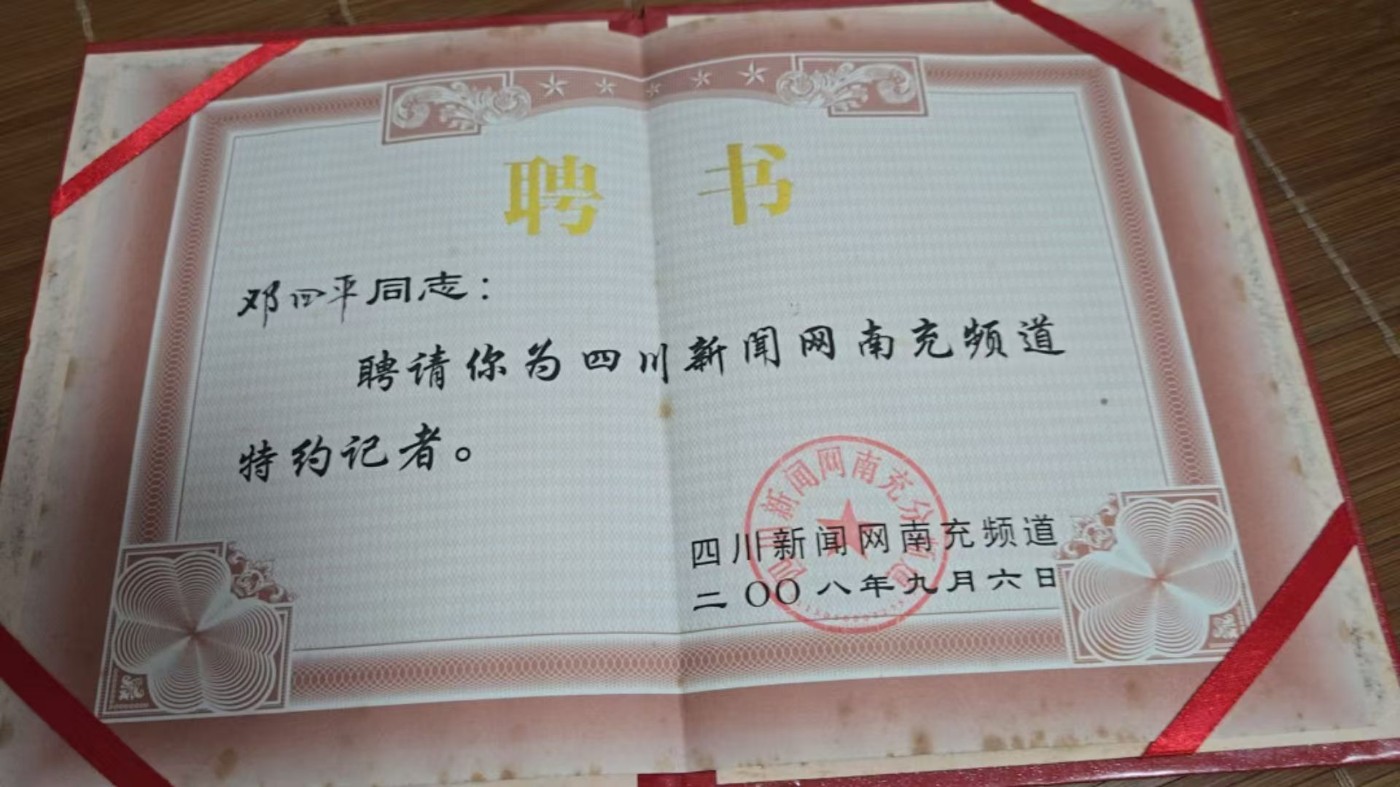 聘 书
邓四平同志：
聘请你为四川新闻网南充频道
特约记者。
四川新闻网南充频道
二〇〇八年九月六日
四川新闻网南充分